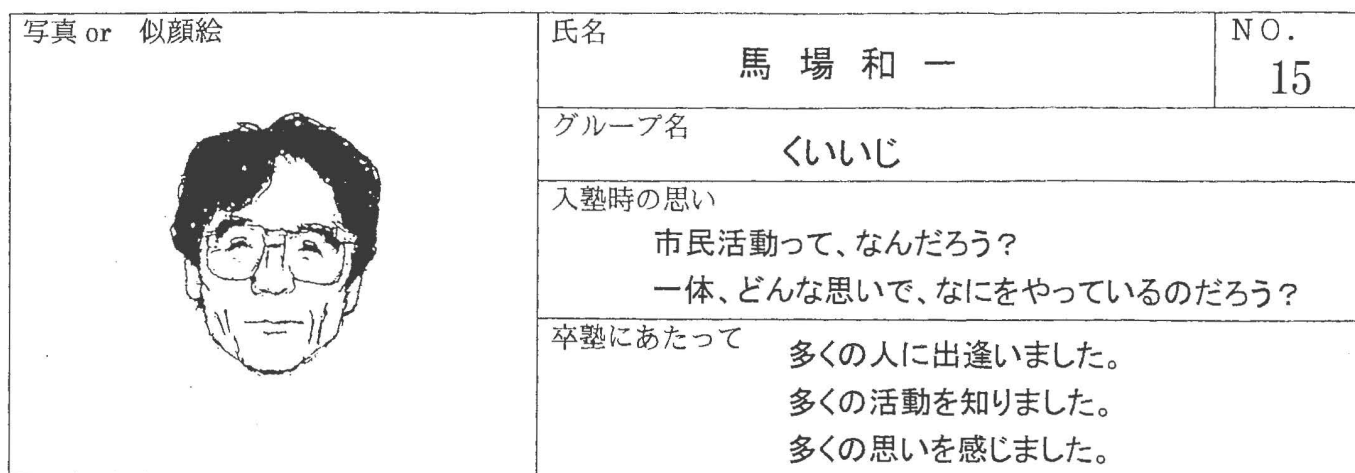 写真 or 似顔絵
氏名
馬 場 和 一
NO.
15
グループ名
くいいじ
入塾時の思い
市民活動って、なんだろう?
一体、どんな思いで、なにをやっているのだろう?
卒塾にあたって
多くの人に出逢いました。
多くの活動を知りました。
多くの思いを感じました。